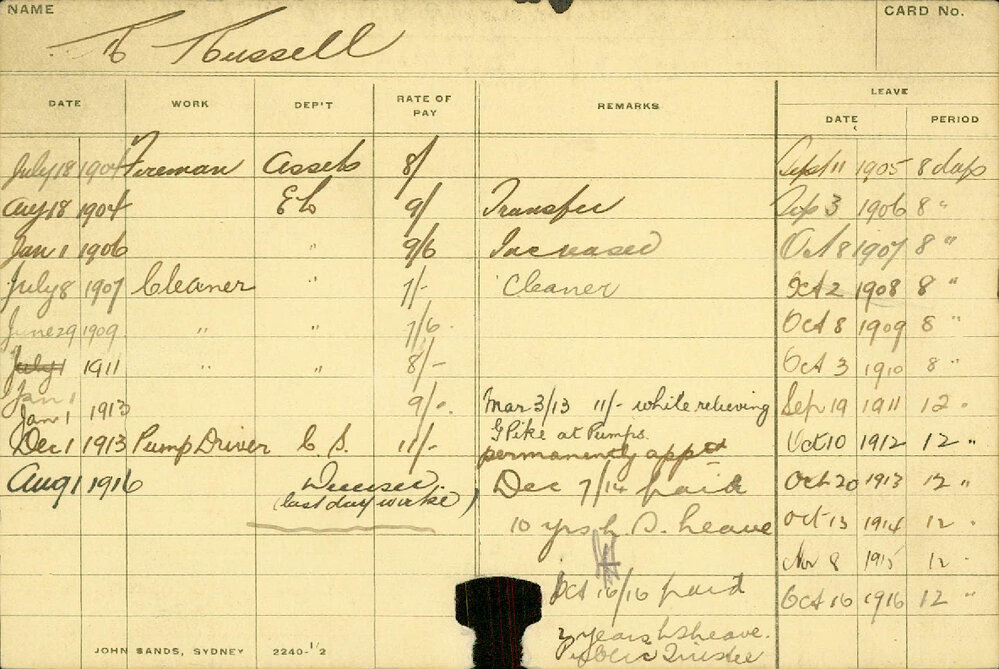 NAME
Russell
CARD No.
DATE WORK DEP'T RATE OF PAY REMARKS LEAVE
DATE PERIOD
July 18 1904 Fireman Assets 8/ Sept 11 1905 8 days
Aug 18 1904 EL 9/ Transfer Sep 3 1906 8 "
Jan 1 1906 " 9/6 Increased Oct 8 1907 8 "
July 8 1907 Cleaner " 7/- Cleaner Oct 2 1908 8 "
June 29 1909 " " 7/6 Oct 8 1909 8 "
July 1 1911 " " 8/- Oct 3 1910 8 "
Jan 1
Jan 1 1913 9/- Mar 3/13 11/- while relieving Sep 19 1911 12 "
G Pike at Pumps.
Dec 1 1913 Pump Driver C. S. 11/- permanently appt Oct 10 1912 12 "
Aug 1 1916 Deceased. Dec 7/14 paid Oct 20 1913 12 "
(last day worked)
10 yrs L. S. Leave Oct 13 1914 12 "
Nov 8 1915 12 "
Oct 16/16 paid Oct 16 1916 12 "
2 years LS Leave.
Public Trustee
JOHN SANDS, SYDNEY 2240-1/2